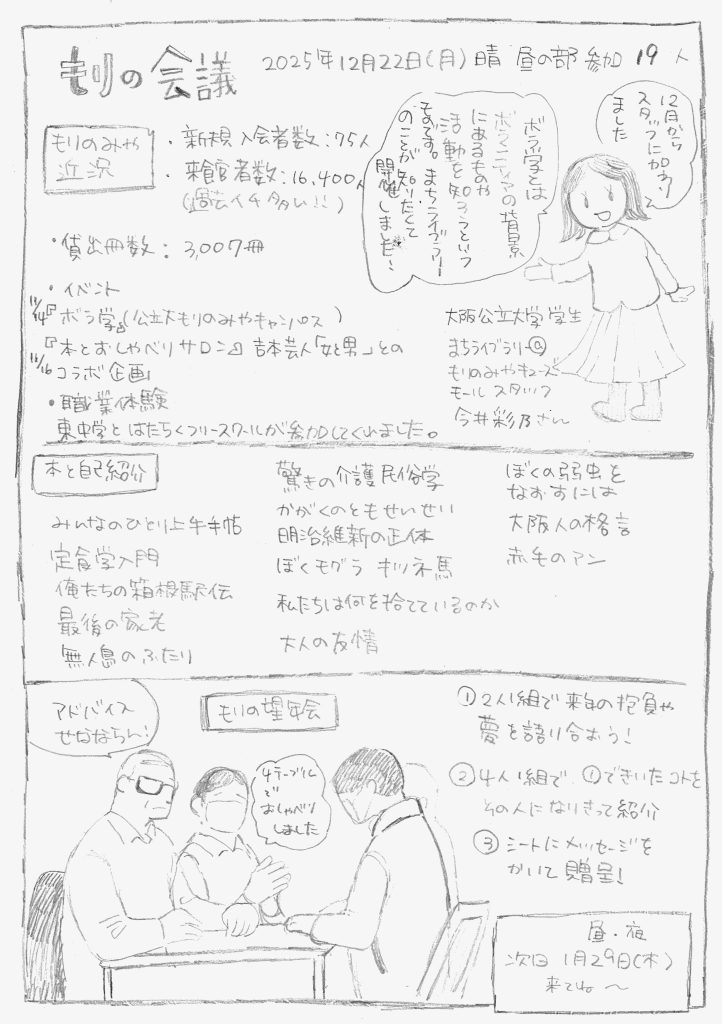 もりの会議 2025年12月22日(月) 晴 昼の部 参加 19人
12月から
スタッフに加わり
ました
ボラ学とは
ボランティアの背景
にあるものや
活動を知ろうという
ものです。まちライブラリー
のことが知りたくて
開催しました!
もりのみや
近況
・新規入会者数:75人
・来館者数:16,400人
(過去イチ多い!!)
・貸出冊数:3,007冊
・イベント
11/14『ボラ学』(公立大もりのみやキャンパス)
『本とおしゃべりサロン』吉本芸人「女と男」との
11/16 コラボ企画
・職業体験
東中学とはたらくフリースクールが参加してくれました。
大阪公立大学 学生
まちライブラリー@
もりのみやキューズ
モール スタッフ
今井彩乃さん
本と自己紹介
みんなのひとり上手手帖
定食学入門
俺たちの箱根駅伝
最後の家老
無人島のふたり
驚きの介護民俗学
かがくのともせいせい
明治維新の正体
ぼくモグラ キツネ馬
私たちは何を捨てているのか
大人の友情
ぼくの弱虫を
なおすには
大阪人の格言
赤毛のアン
もりの望年会
アドバイス
せなならん!
4テーブル
で
おしゃべり
しました
①2人1組で来年の抱負や
夢を語り合おう!
②4人1組で、①できいたコトを
その人になりきって紹介
③シートにメッセージを
かいて贈呈!
昼・夜
次回 1月29日(木)
来てね〜